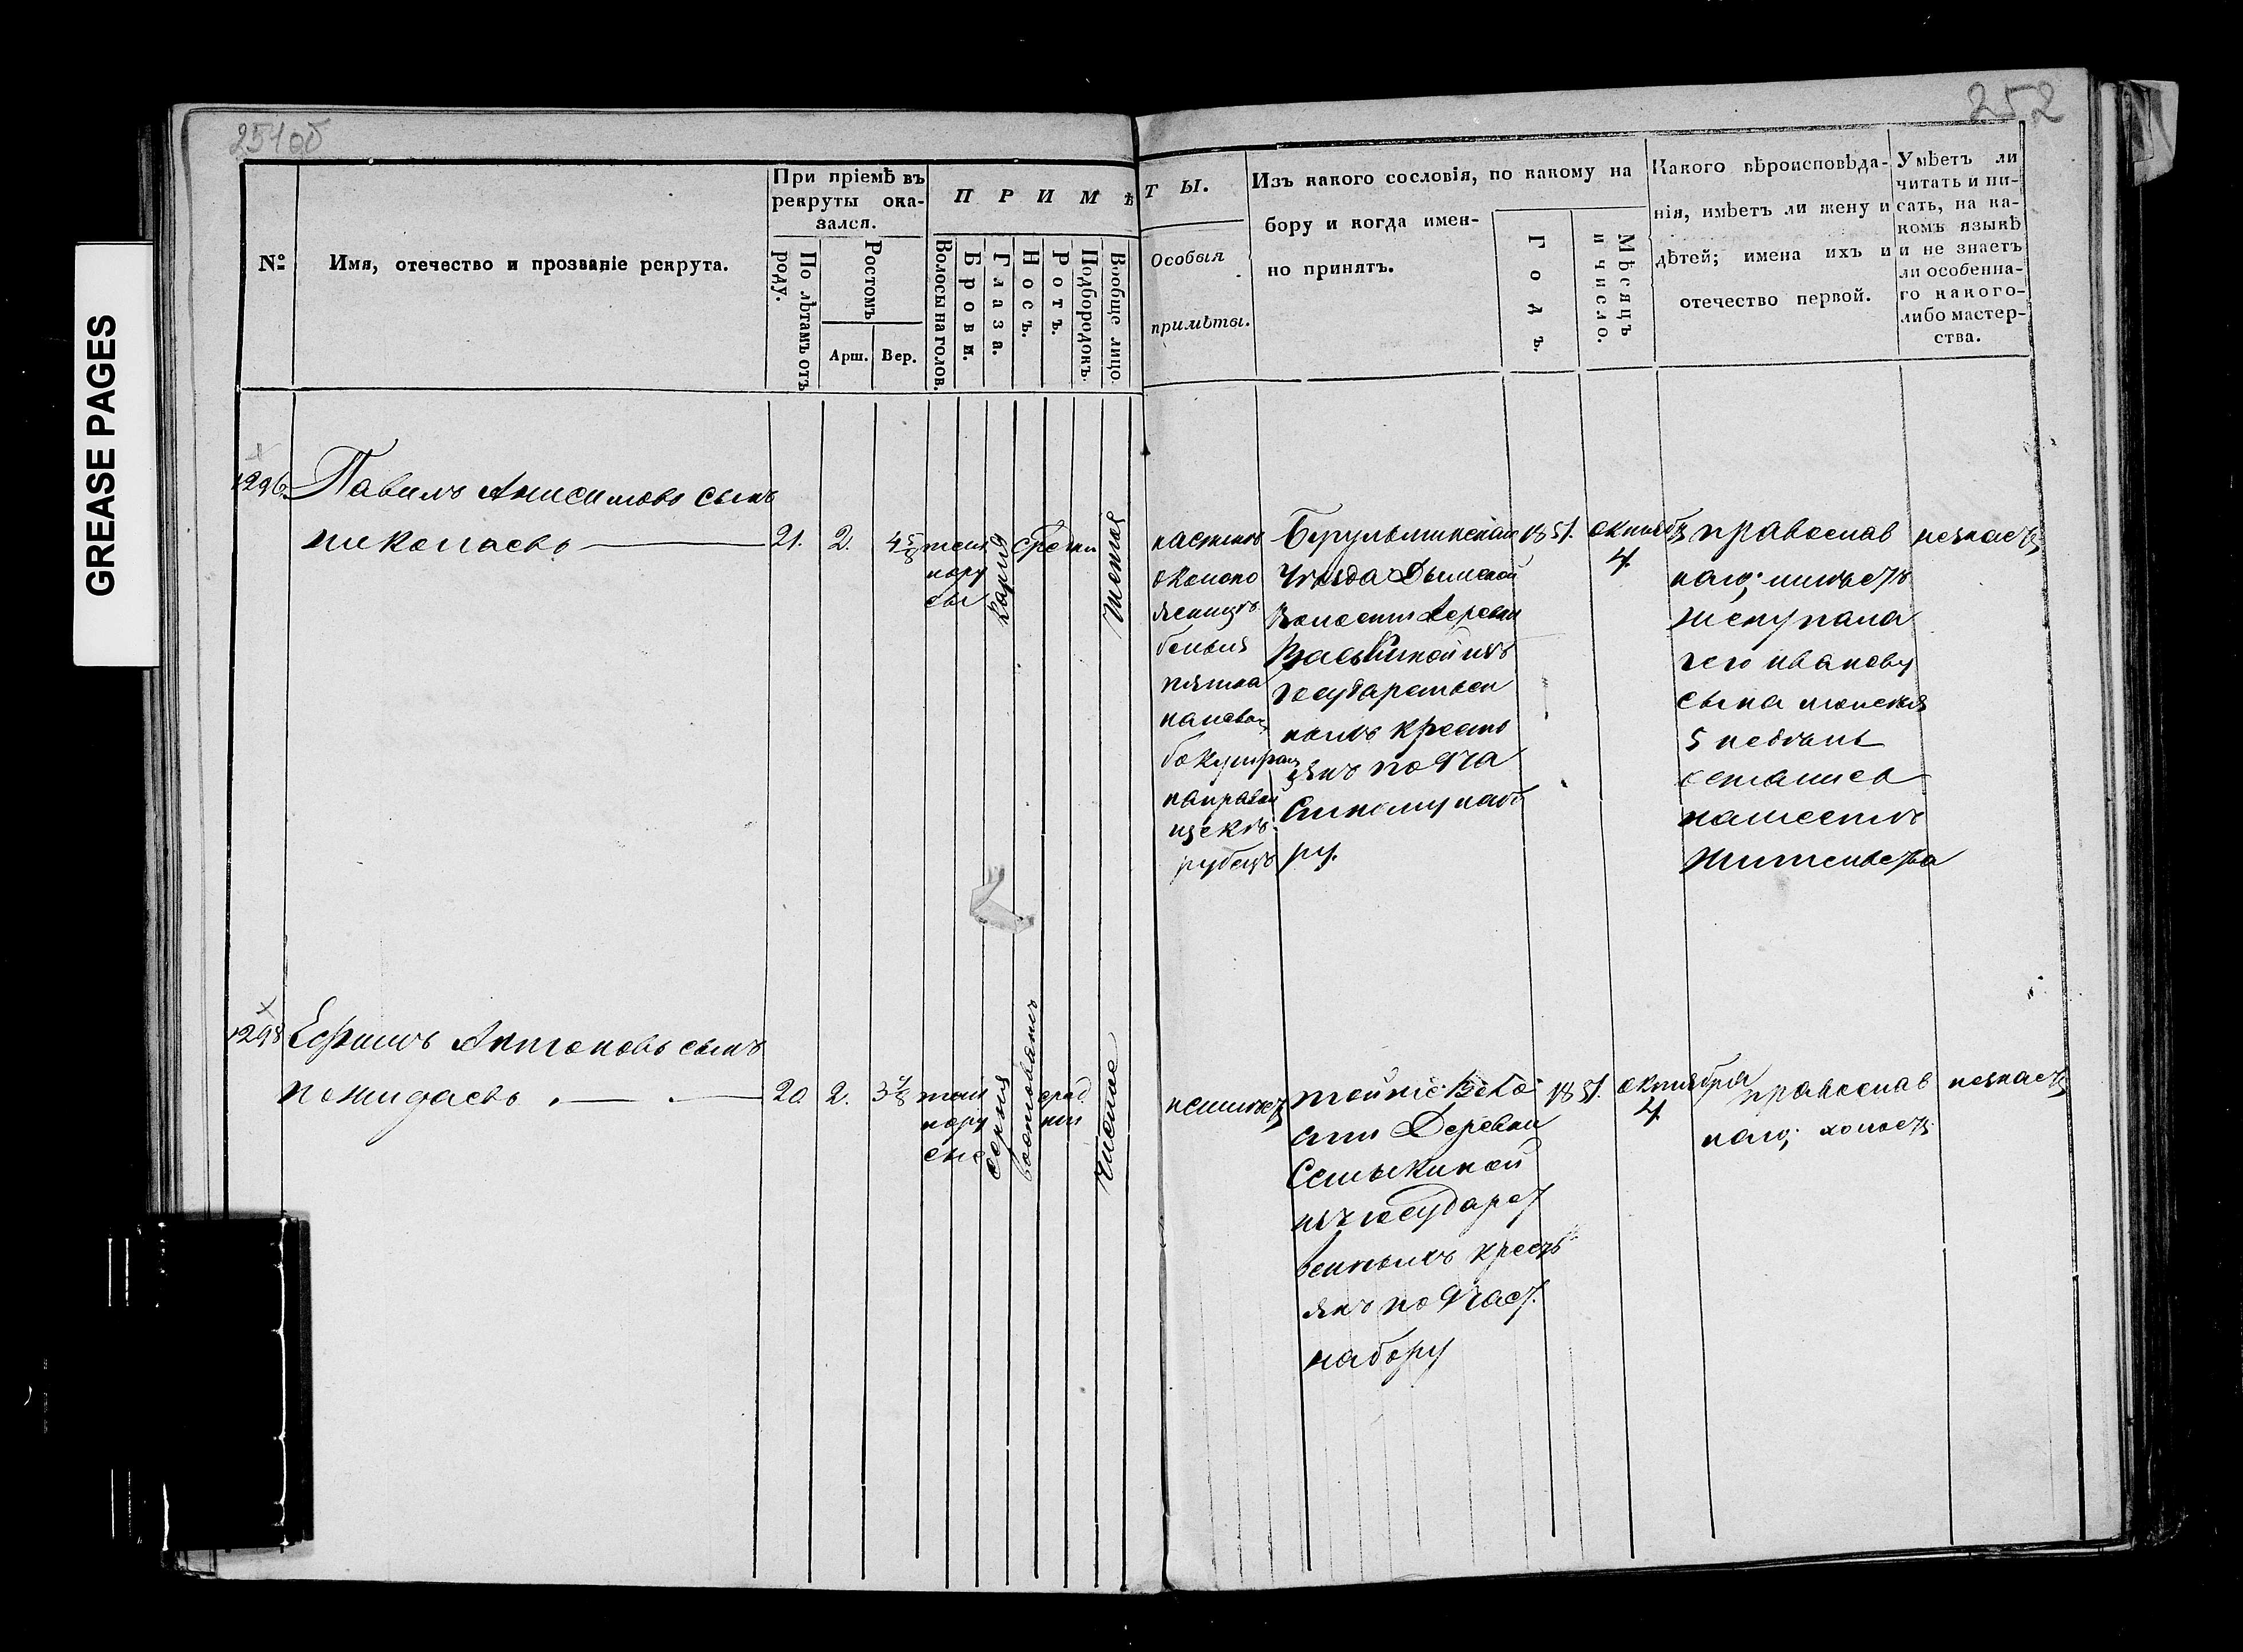 GREASE PAGES
251об
252
№
Имя, отечество и прозваніе рекрута.
При пріемѣ въ
рекруты ока-
зался.
По лѣтамъ отъ
роду.
Ростомъ
Арш.
Вер.
П Р И М Ѣ
Т Ы.
Волосы на голов.
Брови.
Глаза.
Носъ.
Ротъ.
Подбородокъ.
Вообще лицо
Особыя
примѣты.
Изъ какого сословія, по какому на
бору и когда имен-
но принятъ.
Годъ.
Мѣсяцъ
и число.
Какого вѣроисповѣда-
нія, имѣетъ ли жену и
дѣтей; имена ихъ и
отечество первой.
Умѣетъ ли
читать и пи-
сать, на ка-
комъ языкѣ
и не знаетъ
ли особенна-
го какого-
либо мастер-
ства.
1296
Павилъ Анисимовъ сынъ
николаевъ
21.
2.
4 5/8
темн
нору
сы
карія
средни
околопо
ясницъ
белыя
пятна
налевом
боку
направой
щекѣ
рубецъ
Уѣзда Дымской
Волости Деревни
изъ
государствен
ныхъ кресть
янъ по 9 ча
стному наб
ру.
1851.
октябр
4.
православ
наго; имѣетъ
жену пала
гею иванову
сына моисея
5 недѣль
остались
наместѣ
жительства
незнаетъ
1298
Ефимъ Антоновъ сынъ
20
2.
3
нору
серыя
сред
нія
чистое
неимѣетъ
тойже воло
сти Деревни
изъ государст
венныхъ кресть
янъ по 9 част.
набору
1851.
октября
4.
православ
наго; холостъ
незнаетъ